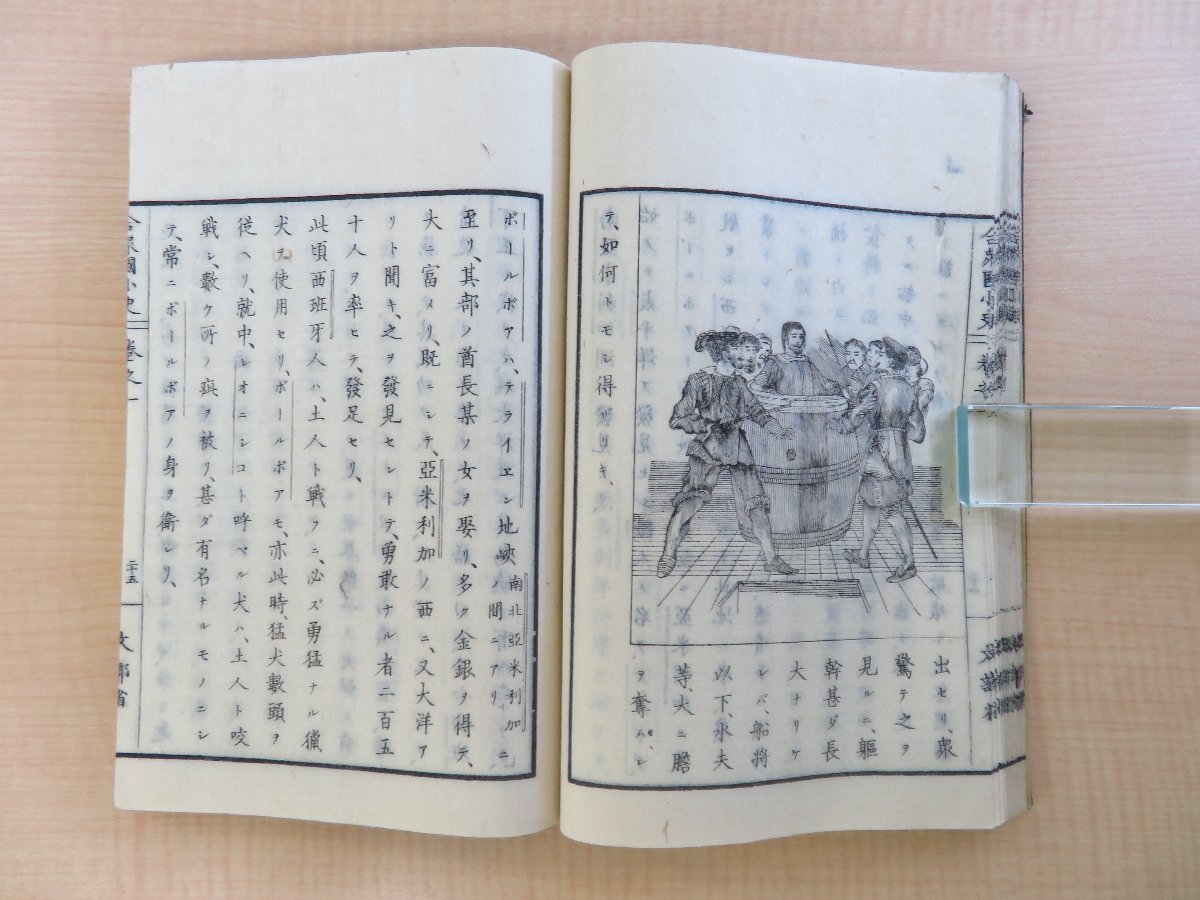 出セリ、衆
驚テ之ヲ
見ルニ、軀
幹甚ダ長
大ナリケ
レバ、船將
以下、水夫
等、大ニ膽
ヲ奪ハレ
テ、如何トモシ得
ボールボアハ、テライエン地峽南北亞米利加ノ間ニアリニ
至リ、其部ノ酋長某ノ女ヲ娶リ、多ク金銀ヲ得テ、
大ニ富メリ、既ニシテ、亞米利加ノ西ニ、又大洋ア
リト聞キ、之ヲ發見セントテ、勇敢ナル者二百五
十人ヲ率ヒテ、發足セリ、
此頃西班牙人ハ、土人ト戰フニ、必ズ勇猛ナル獵
犬ヲ使用セリ、ボールボアモ、亦此時、猛犬數頭ヲ
從ヘリ、就中、レオニシコト呼ベル犬ハ、土人ト咬
戰シ、數ケ所ノ疵ヲ被リ、甚ダ有名ナルモノニシ
テ、常ニボールボアノ身ヲ衛レリ、
合衆國小史 卷之一 二十五 文部省